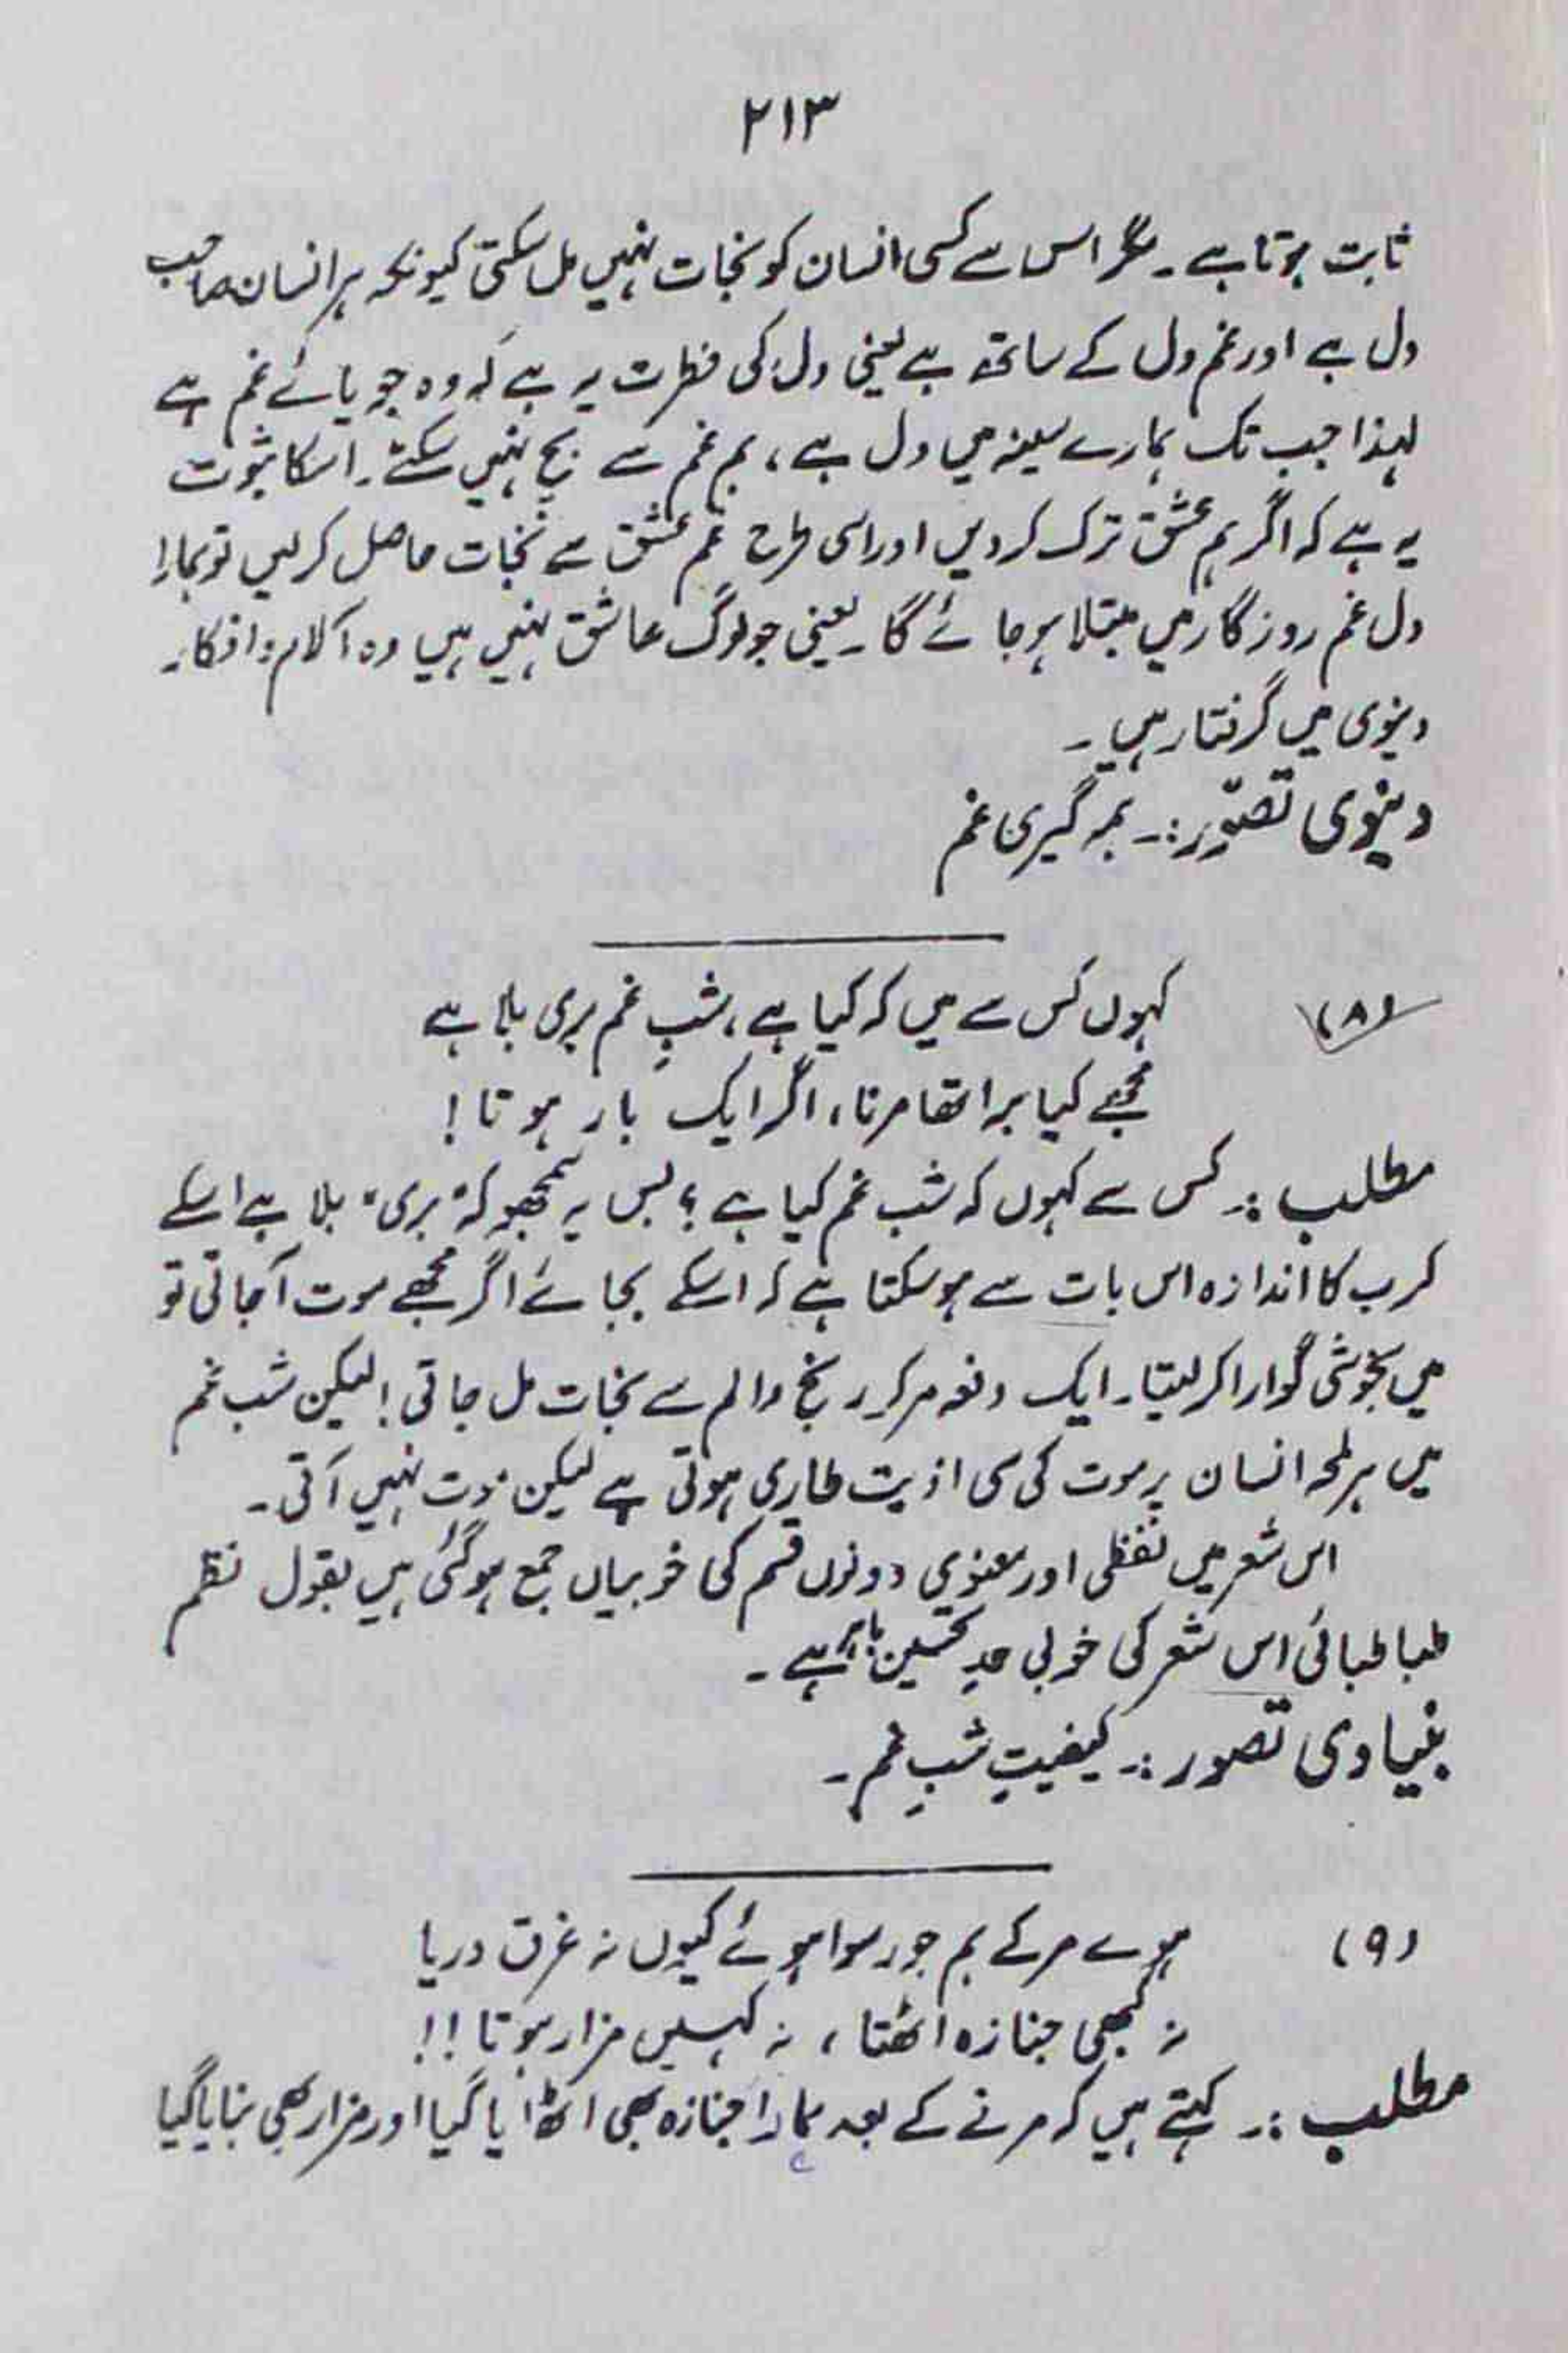 ۲۱۳
ثابت ہوتا ہے۔ مگر اس سے کسی انسان کو نجات نہیں مل سکتی کیونکہ ہر انسان صاحب
دل ہے اور غم دل کے ساتھ ہے یعنی دل کی فطرت یہ ہے کہ وہ جویائے غم ہے
لہذا جب تک ہمارے سینہ میں دل ہے، ہم غم سے بچ نہیں سکتے۔ اسکا ثبوت
یہ ہے کہ اگر ہم عشق ترک کردیں اور اسی طرح غم عشق سے نجات حاصل کرلیں تو ہمارا
دل غم روزگار میں مبتلا ہو جائے گا۔ یعنی جو لوگ عاشق نہیں ہیں وہ آلام و افکار
دنیوی میں گرفتار ہیں۔
دنیوی تصوّر:۔ ہمہ گیری غم
(۸) کہوں کس سے میں کہ کیا ہے، شبِ غم بری بلا ہے
مجھے کیا برا تھا مرنا، اگر ایک بار ہوتا!
مطلب:۔ کس سے کہوں کہ شب غم کیا ہے؟ بس یہ سمجھو کہ "بری" بلا ہے اسکے
کرب کا اندازہ اس بات سے ہوسکتا ہے کہ اسکے بجائے اگر مجھے موت آجاتی تو
میں بخوشی گوارا کرلیتا۔ ایک دفعہ مرکر رنج والم سے نجات مل جاتی! لیکن شب غم
میں ہر لمحہ انسان پر موت کی سی اذیت طاری ہوتی ہے لیکن موت نہیں آتی۔
اس شعر میں لفظی اور معنوی دونوں قسم کی خوبیاں جمع ہوگئی ہیں بقول نظم
طباطبائی اس شعر کی خوبی حدِ تحسین باہر ہے۔
بنیادی تصور:۔ کیفیتِ شبِ غم۔
(۹) ہوے مرکے ہم جو رسوا ہوئے کیوں نہ غرق دریا
نہ کبھی جنازہ اٹھتا، نہ کہیں مزار ہوتا!!
مطلب:۔ کہتے ہیں کہ مرنے کے بعد ہمارا جنازہ بھی اٹھایا گیا اور مزار بھی بنایا گیا